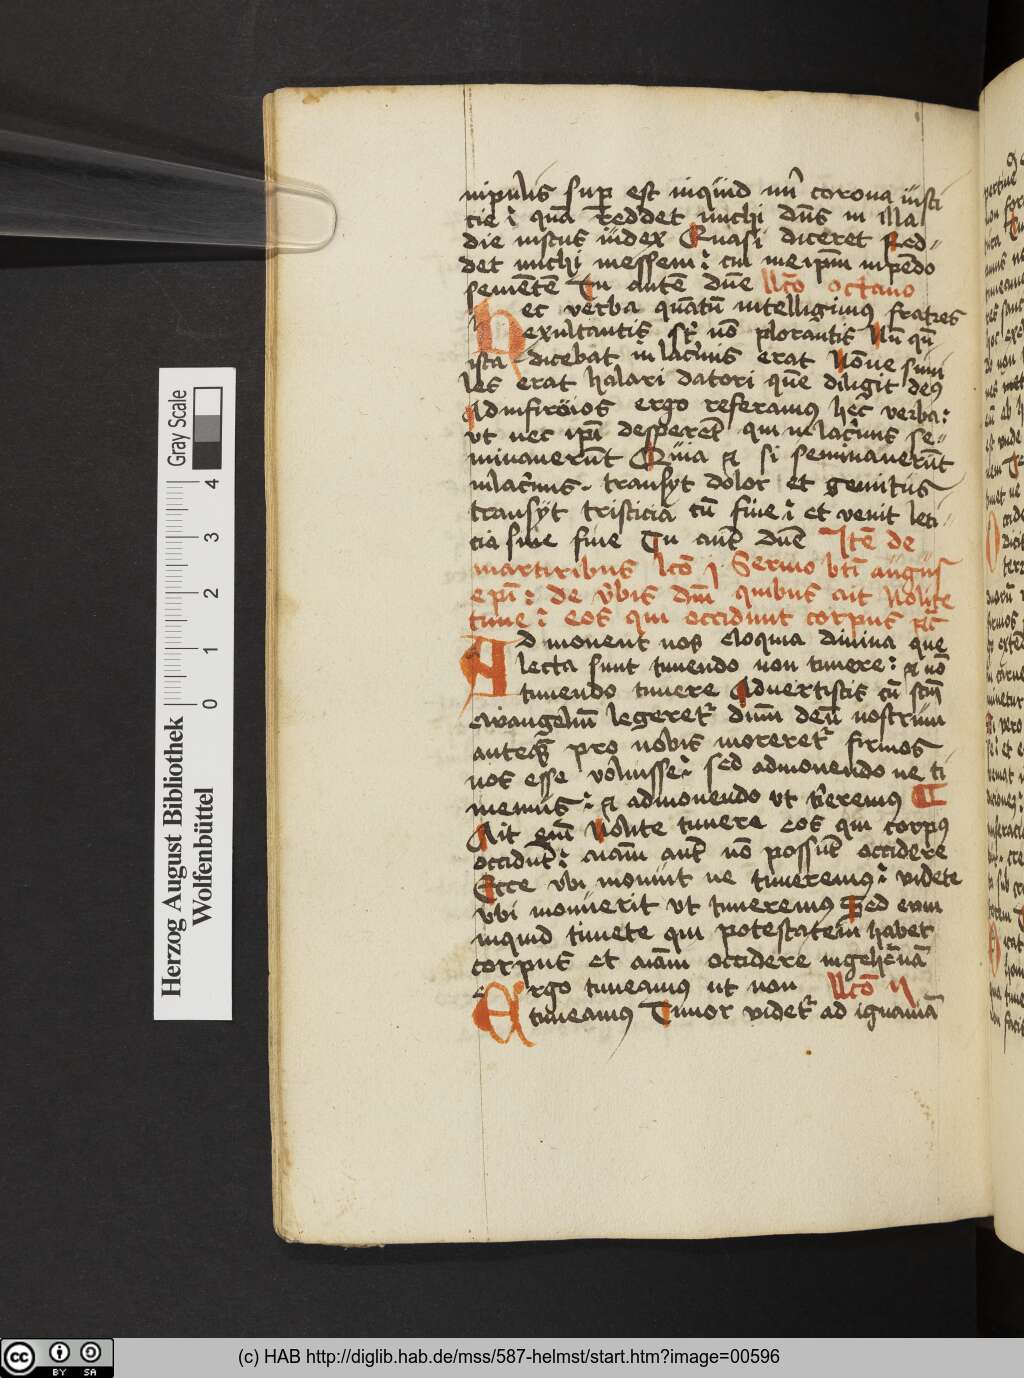 nipulis sup est inquid mi corona iusti
cie qua reddet michi dns in illa
die iustus iudex Quasi diceret Red-
det michi messem cui meipm inpedo
semetē Tu autē dne llco octauo
Hec verba quatū intelligimus fratres
exultantis st nō plorantis Nū qn
ista dicebat in lacimis erat Nōne simi
les erat halari datori quē diligit deus
Ad infiriōios ergo referamus hec verba:
vt nec ipi desperet qui in lacimis se-
minauerūt Quia si seminauerūt
in lacimis transyt dolor et gemitus
transyt tristicia cū fine et venit leti
cia sine fine Tu aut dne Itē de
martiribus lco j Sermo bti augus
epi: de vbis dni quibus ait Nolite
timere eos qui occidunt corpus
Ad monent nos eloquia diuina que
lecta sunt timendo non timere: nō
timendo timere Aduertistis cū scm
ewangeliū legeret dnm deū nostrum
anteqz pro nobis moreret firmos
nos esse voluisse sed admonendo ne ti
memus admonendo vt teremus
Ait enī Nolite timere eos qui corpus
occidūt aiam aut nō possūt occidere
Ecce vbi monuit ne timeremus videte
vbi monuerit vt timeremus Sed eum
inquid timete qui potestatem habet
corpus et aiam occidere in gehēnā
Ergo timeamus ut non llco ij
timeamus Timor videt ad ignauiā
Gray Scale
0 1 2 3 4
Herzog August Bibliothek
Wolfenbüttel
cc BY SA
(c) HAB http://diglib.hab.de/mss/587-helmst/start.htm?image=00596